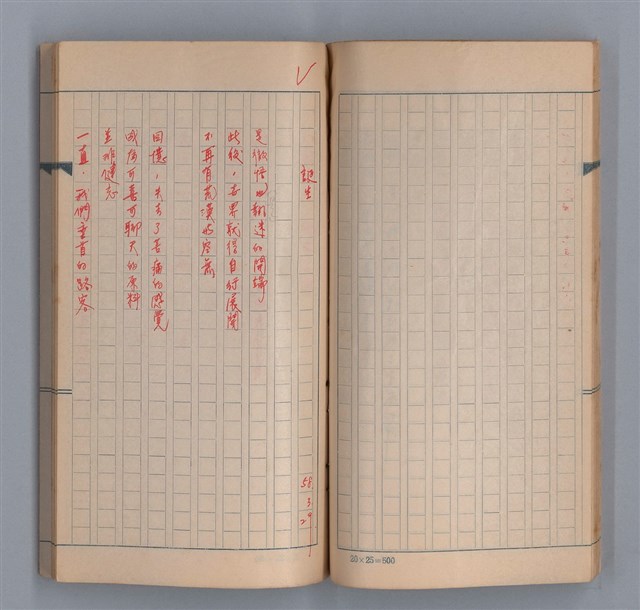 誕生
58 3 29
是徹悟
的開端
此後，世界就得自行展開
不再有荒漠的空前
回憶，失去了苦痛的感覺
成為可喜可聊天的原料
並非健忘
一直，我們垂首的路客
20×25=500